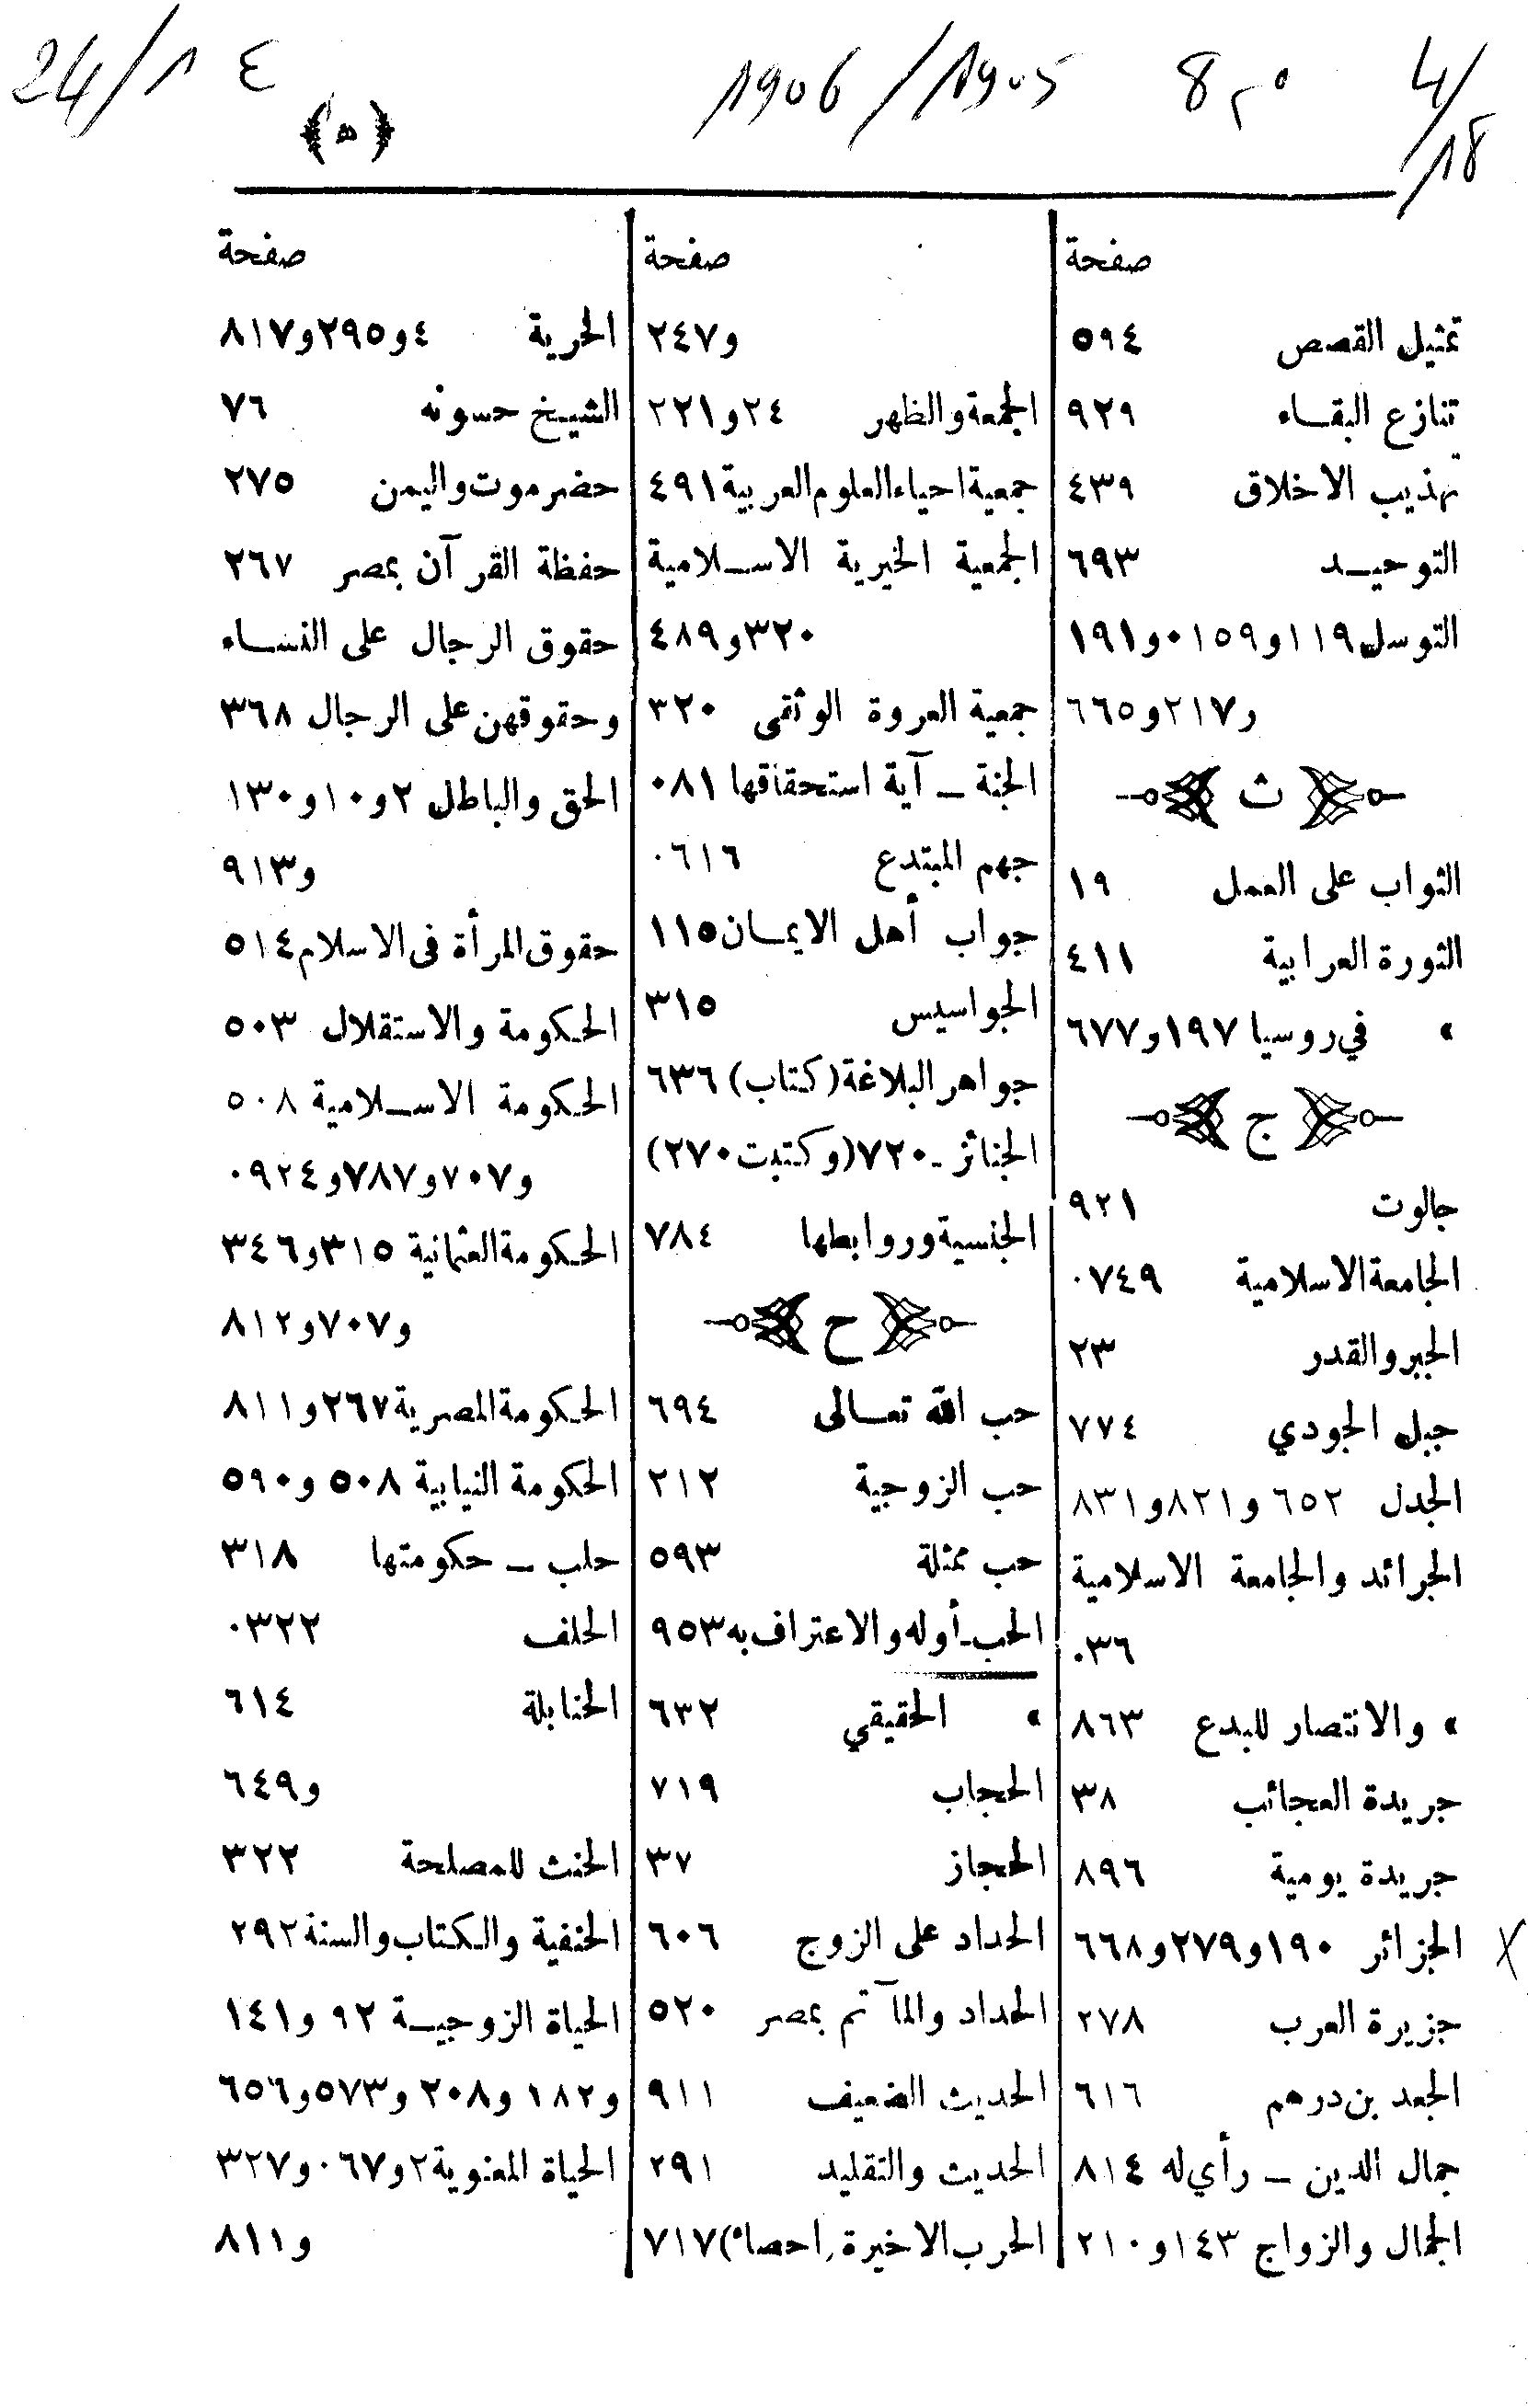 24/1 ٤
1906/1905 8م 4/18
(ه)
صفحة
تمثيل القصص ٥٩٤
تنازع البقاء ٩٢٩
تهذيب الاخلاق ٤٣٩
التوحيد ٦٩٣
التوسل ١١٩و١٥٩٠و١٩١
و٢١٧و٦٦٥
ث
الثواب على العمل ١٩
الثورة العرابية ٤١١
» في روسيا ١٩٧و٦٧٧
ج
جالوت ٩٢١
الجامعة الاسلامية ٧٤٩٠
الجبر والقدر ٢٣
جبل الجودي ٧٧٤
الجدل ٦٥٢ و٨٢١و٨٣١
الجرائد والجامعة الاسلامية
٣٦٠
» والانتصار للبدع ٨٦٣
جريدة العجائب ٣٨
جريدة يومية ٨٩٦
الجزائر ١٩٠و٢٧٩و٦٦٨
جزيرة العرب ٢٧٨
الجعد بن درهم ٦١٦
جمال الدين ــ رأي له ٨١٤
الجمال والزواج ١٤٣و٢١٠
صفحة
و٢٤٧
الجمعة والظهر ٢٤و٢٢١
جمعية احياء العلوم العربية ٤٩١
الجمعية الخيرية الاسلامية
٣٢٠و٤٨٩
جمعية العروة الوثقى ٣٢٠
الجنة ــ آية استحقاقها ٨١٠
جهم المبتدع ٦١٦٠
جواب أهل الايمان ١١٥
الجواسيس ٣١٥
جواهر البلاغة (كتاب) ٦٣٦
الجنائز ـ ٧٢٠(وكتبت ٢٧٠)
الجنسية وروابطها ٧٨٤
ح
حب الله تعالى ٦٩٤
حب الزوجية ٢١٢
حب ممثلة ٥٩٣
الحب ـ أوله والاعتراف به ٩٥٣
» الحقيقي ٦٣٢
الحجاب ٧١٩
الحجاز ٣٧
الحداد على الزوج ٦٠٦
الحداد والمآتم بمصر ٥٢٠
الحديث الضعيف ٩١١
الحديث والتقليد ٢٩١
الحرب الاخيرة (احصاء) ٧١٧
صفحة
الحرية ٤و٢٩٥و٨١٧
الشيخ حسونه ٧٦
حضرموت واليمن ٢٧٥
حفظة القرآن بمصر ٢٦٧
حقوق الرجال على النساء
وحقوقهن على الرجال ٣٦٨
الحق والباطل ٢و١٠و١٣٠
و٩١٣
حقوق المرأة فى الاسلام ٥١٤
الحكومة والاستقلال ٥٠٣
الحكومة الاسلامية ٥٠٨
و٧٠٧و٧٨٧و٩٢٤٠
الحكومة العثمانية ٣١٥و٣٤٦
و٧٠٧و٨١٢
الحكومة المصرية ٢٦٧و٨١١
الحكومة النيابية ٥٠٨ و٥٩٠
حلب ــ حكومتها ٣١٨
الحلف ٣٢٢٠
الحنابلة ٦١٤
و٦٤٩
الحنث للمصلحة ٣٢٢
الحنفية والكتاب والسنة ٢٩٢
الحياة الزوجية ٩٢ و١٤١
و١٨٢ و٢٠٨ و٥٧٣و٦٥٦
الحياة المعنوية ٢و٦٧٠و٣٢٧
و٨١١